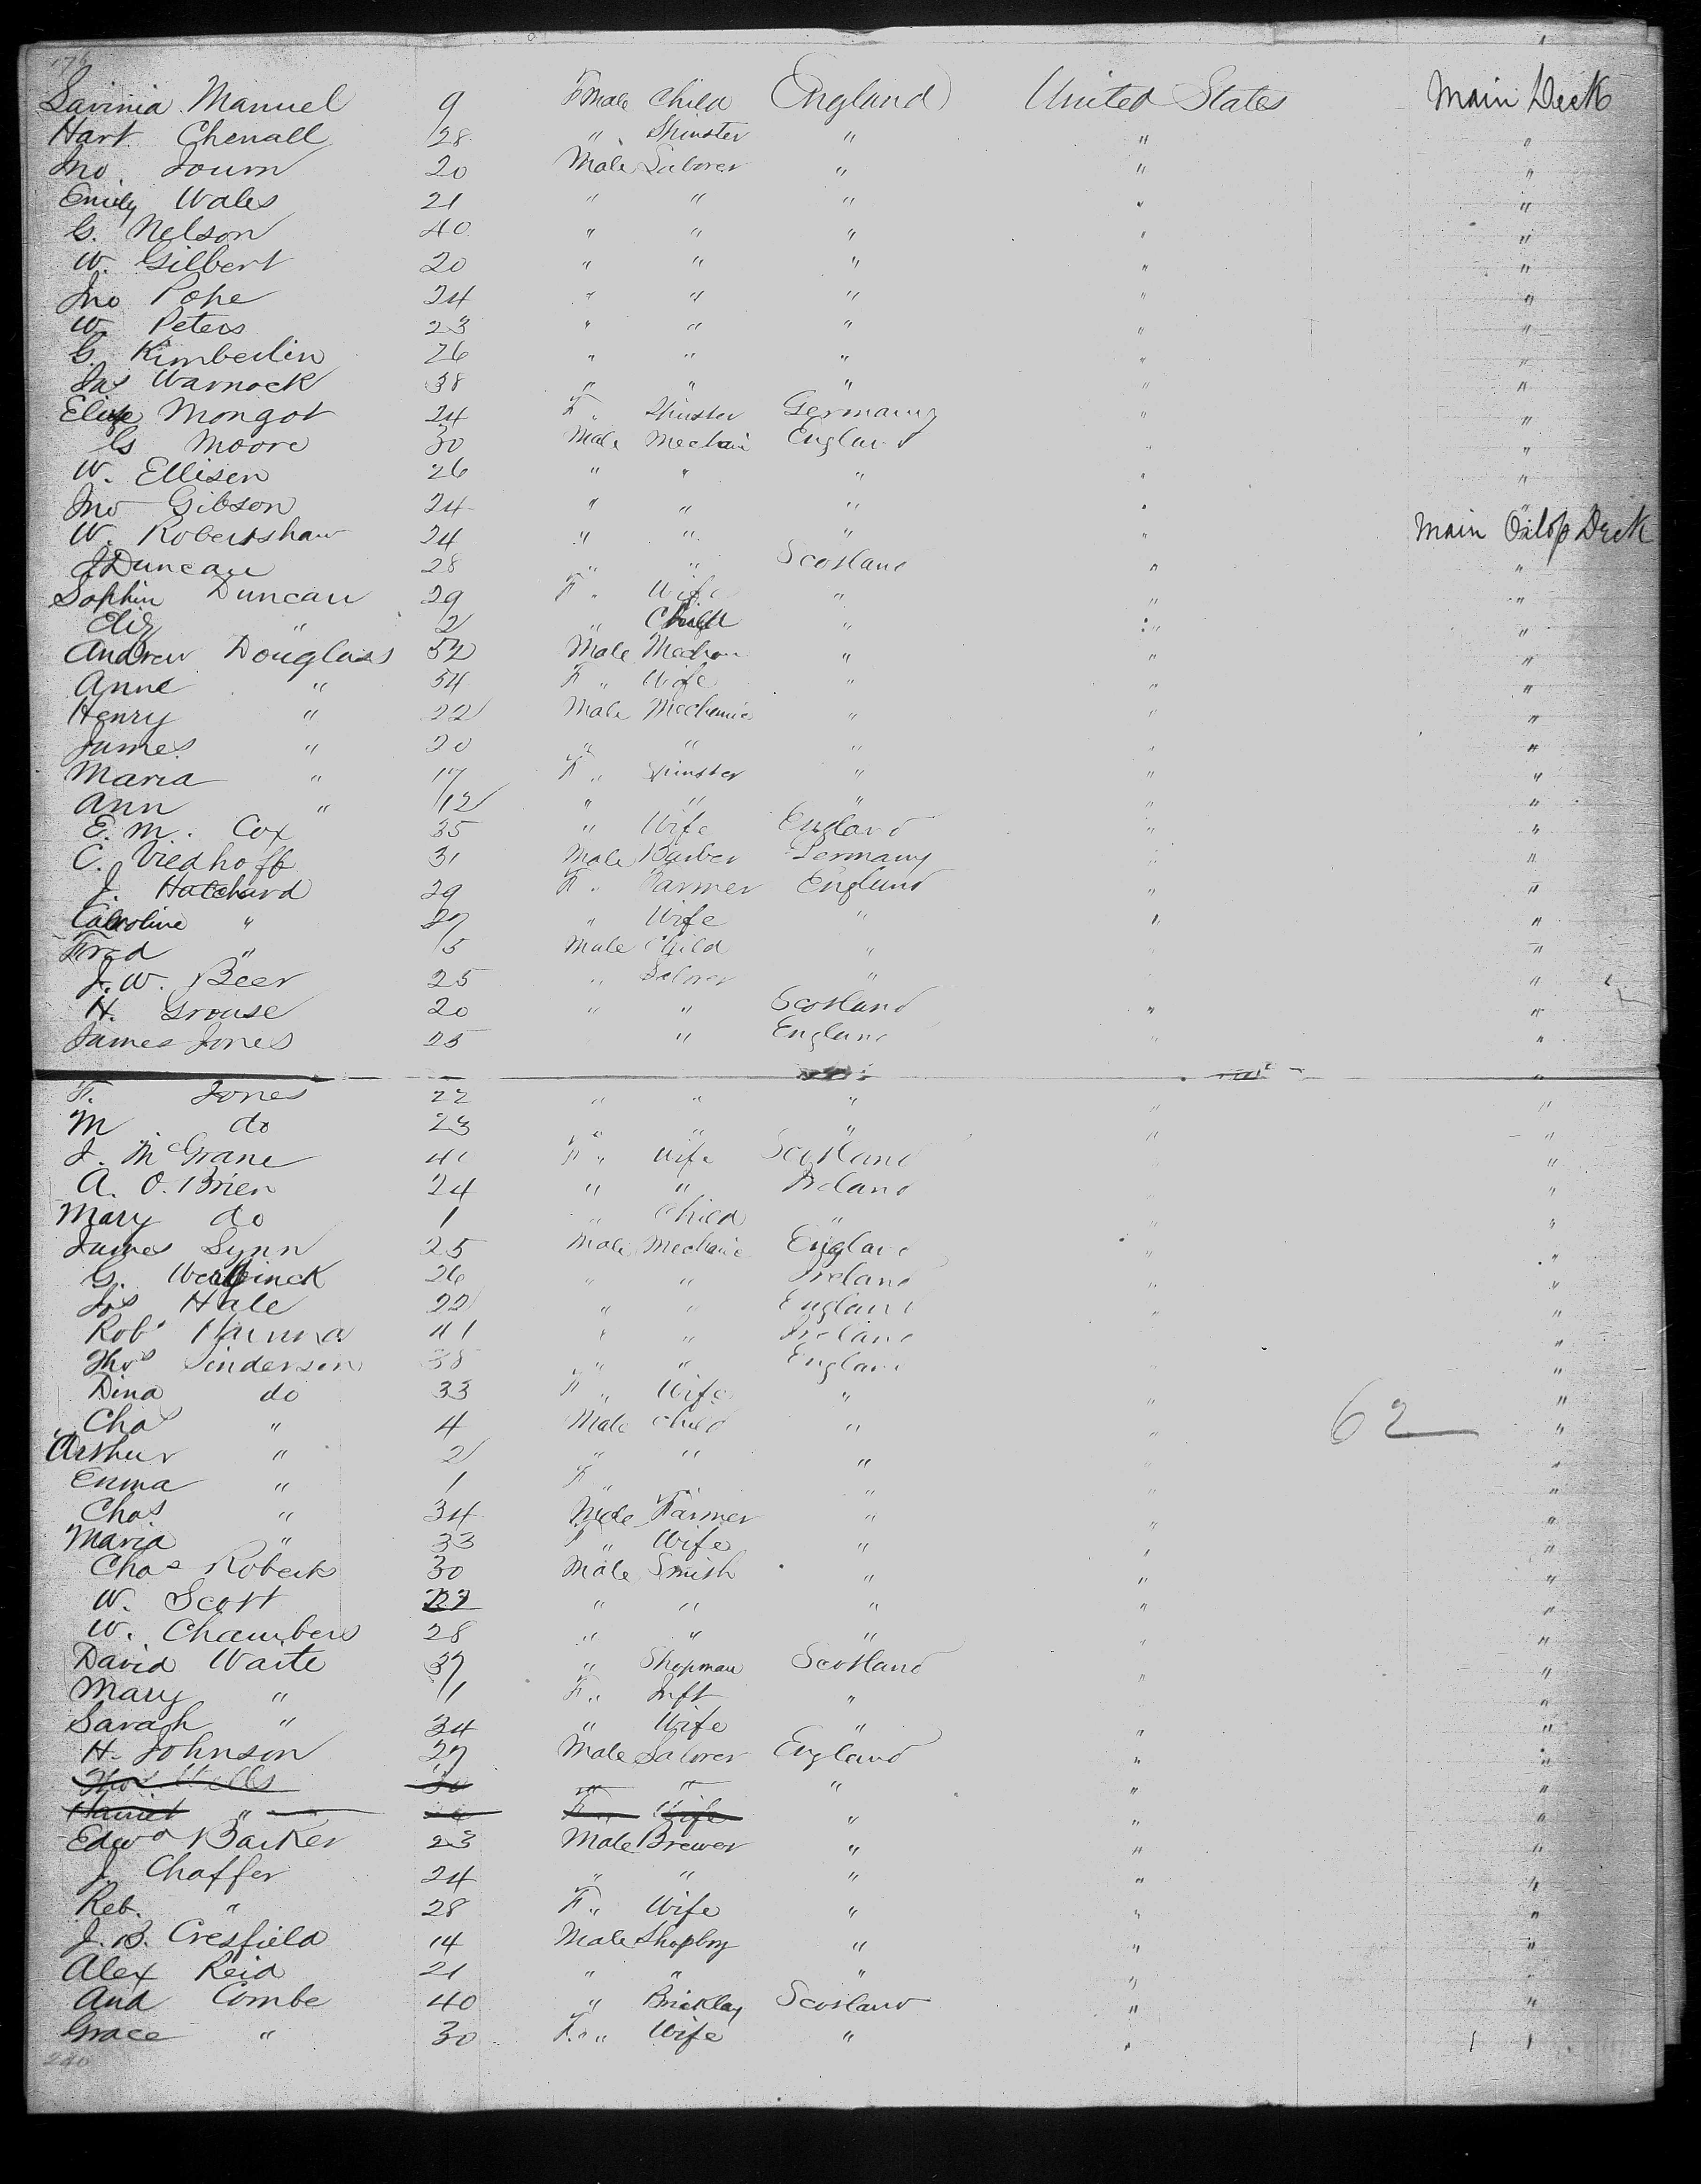 176
Savinia Manuel 9 FMale Child England United States Main Deck
Hart Chenall 28 " Spinster " " "
Jno 20 Male Laborer " " "
Emily Wales 21 " " " " "
G. Nelson 40 " " " " "
W. Gilbert 20 " " " " "
Jno Pope 24 " " " " "
W. Peters 23 " " " " "
G. Kimberlin 26 " " " " "
Jas Warnock 38 " " " " "
Eliza Mongot 24 F " Spinster Germany " "
Gs Moore 30 Male Mechani England " "
W. Ellisen 26 " " " " "
Jno Gibson 24 " " " " "
W. Robertshaw 24 " " " " Main Orlop Deck
J Duncan 28 " " Scotland " "
Sophia Duncan 29 F " Wife " " "
Eliz " 2 " Child " " "
Andrew Douglass 52 Male Mechan " " "
Anne " 54 F " Wife " " "
Henry " 22 Male Mechanic " " "
James " 20 " " " " "
Maria " 17 F " Spinster " " "
Ann " 12 " " " " "
E. M. Cox 35 " Wife England " "
C. Viedhoff 31 Male Barber Germany " "
J. Hatchard 29 F " Farmer England " "
Caroline " 27 " Wife " " "
Fred " 5 Male Child " "
J. W. Beer 25 " Laborer " "
H. Grouse 20 " " Scotland " "
James Jones 25 " England " "
F. Jones 22 " " " " "
M do 23 " " " " "
J. McGrane 40 F " Wife Scotland "
A. O. Brien 24 " " Ireland "
Mary do 1 " Child " " "
James Lynn 25 Male Mechanic England " "
G. 26 " " Ireland " "
Jos Hale 22 " " England " "
Robt Hanna 41 " " Ireland "
Thos Sinderson 38 " " England "
Dina do 33 F " Wife " " "
Chas " 4 Male Child " " 62 "
Arthur " 2 " " " "
Emma " 1 F " " " "
Chas " 34 Male Farmer " "
Maria " 33 F " Wife " " "
Chas Roberts 30 Male Smith " " "
W. Scott 22 " " " " "
W. Chambers 28 " " " " "
David Waite 37 " Shopman Scotland " "
Mary " 1 F " Inft " "
Sarah " 34 " Wife " " "
H. Johnson 27 Male Laborer England " "
Thos Wells 30 " " " " "
Harriet " F " Wife " " "
Edwd Barker 23 Male Brewer " " "
J. Chaffer 24 " " " " "
Reb. " 28 F " Wife " " "
J. B. Cresfield 14 Male Shopboy " " "
Alex Reid 21 " " " " "
And Combe 40 " Bricklay Scotland " "
Grace " 30 F. " Wife " "
240